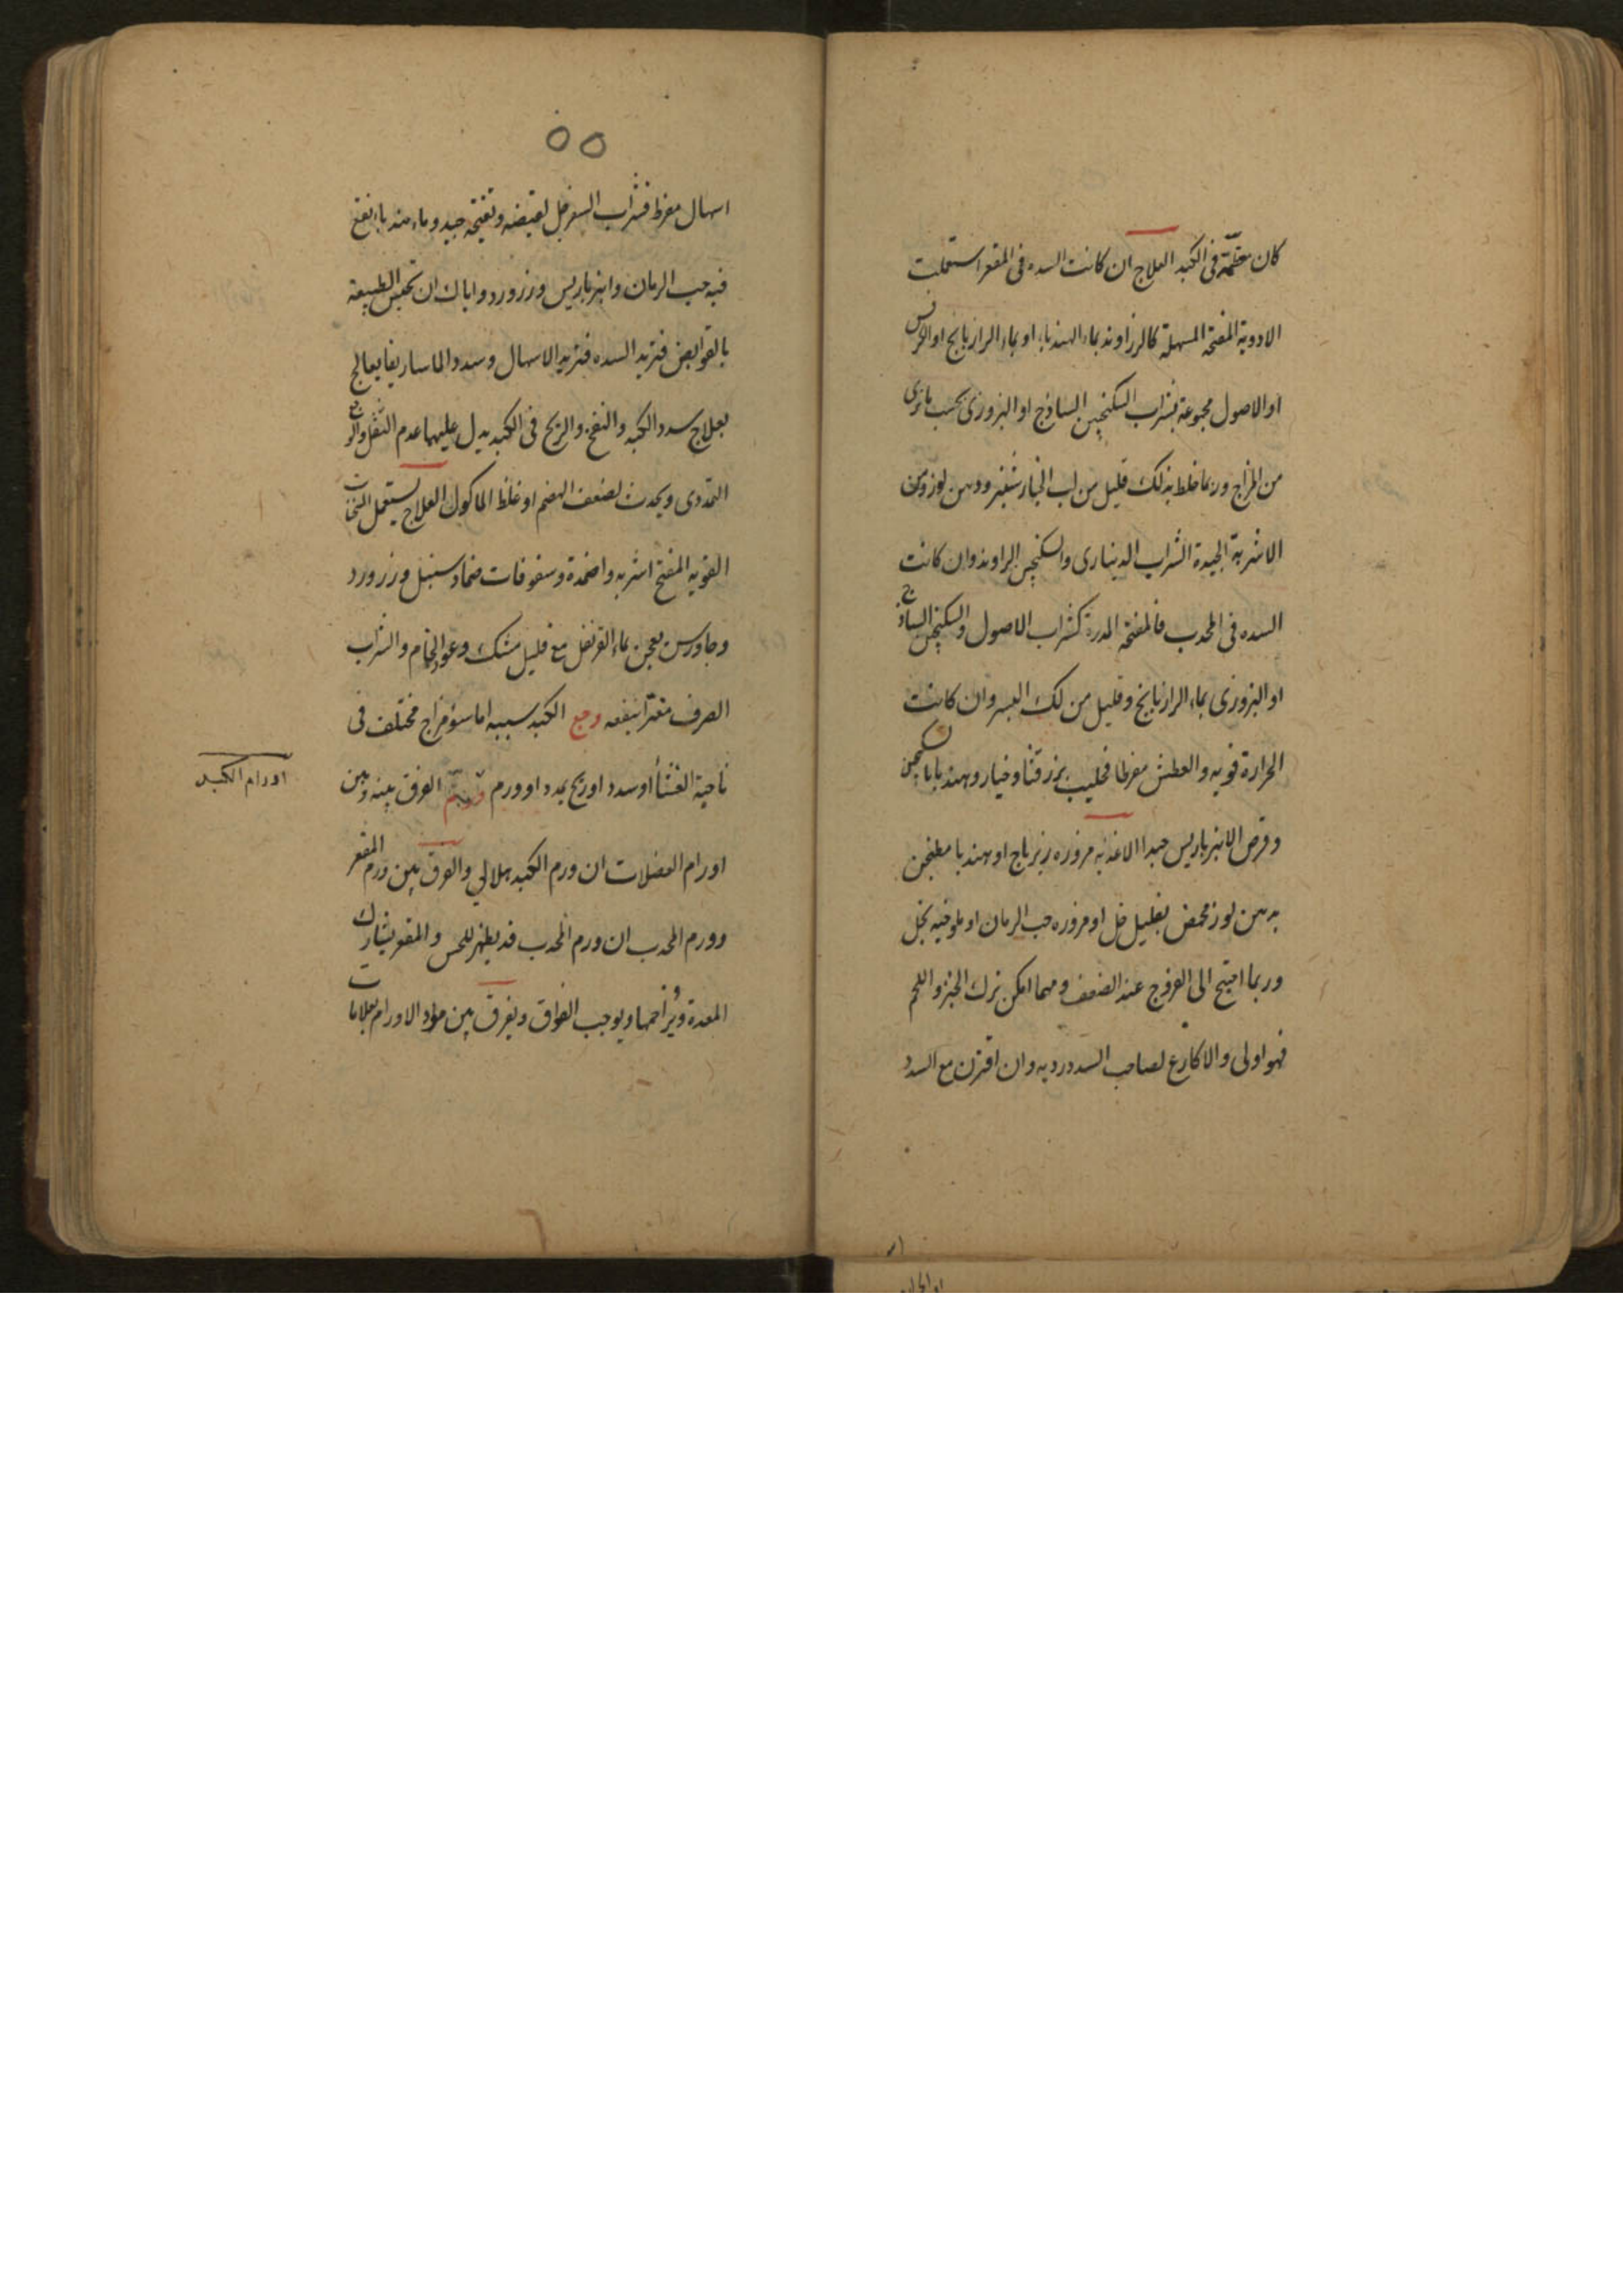 كان معظمه فى الكبد العلاج ان كانت السده فى المقعر استعملت
الادوية المفتحة المسهلة كالرزاوند بماء الهندباء او بماء الرازيانج او الكرفس
او الاصول مجموعة بشراب السكنجبين الساذج او البزورى بحسب ما ترى
من المزاج وربما خلط بذلك قليل من لب الخيارشنبر ودهن لوز ومن
الاشربة الجيدة الشراب الدينارى والسكنجبين الراوند وان كانت
السده فى المحدب فالمفتحة المدرة كشراب الاصول والسكنجبين الساذج
او البزورى بماء الرازيانج وقليل من لك البسر وان كانت
الحرارة قويه والعطش مفرطا فحليب بزر قثا وخيار وهندبا بالسكنجبين
وقرص الانبرباريس جيد الاغذيه مزوره زيرباج او هندبا مطجن
بدهن لوز محمض بقليل خل او مزوره حب الرمان او ملوخيه بخل
وربما احتيج الى الفروج عند الضعف ومهما امكن ترك الخبز واللحم
فهو اولى والاكارع لصاحب السدد رديه وان اقترن مع السدد
٥٥
اسهال مفرط فشراب السفرجل لقبضه وتفتيحه جيد وماء هندباء نقع
فيه حب الرمان وانبرباريس وزرورد واياك ان تحبس الطبيعة
بالقوابض فتزيد السده فتزيد الاسهال وسدد الماساريقا يعالج
بعلاج سدد الكبد والنفخ والريح فى الكبد يدل عليهما عدم الثقل والوجع
التمددى ويحدث لضعف الهضم او غلظ الماكول العلاج يستعمل
القويه المفتح اشربه واضمدة وسفوفات ضماد سنبل وزرورد
وجاورس يعجن بماء القرنفل مع قليل مشك وعود الخام والشراب
الصرف مفترا ينفعه وجع الكبد سببه اما سوء مزاج مختلف فى
ناحية الغشا او سدد او ريح يمدد او ورم الفرق بينه وبين
اورام الكبد
اورام العضلات ان ورم الكبد هلالي والفرق بين ورم المقعر
وورم المحدب ان ورم المحدب قد يظهر للحس والمقعر يشارك
المعدة ويزاحمها ويوجب الفواق ويفرق بين مواد الاورام بعلامات